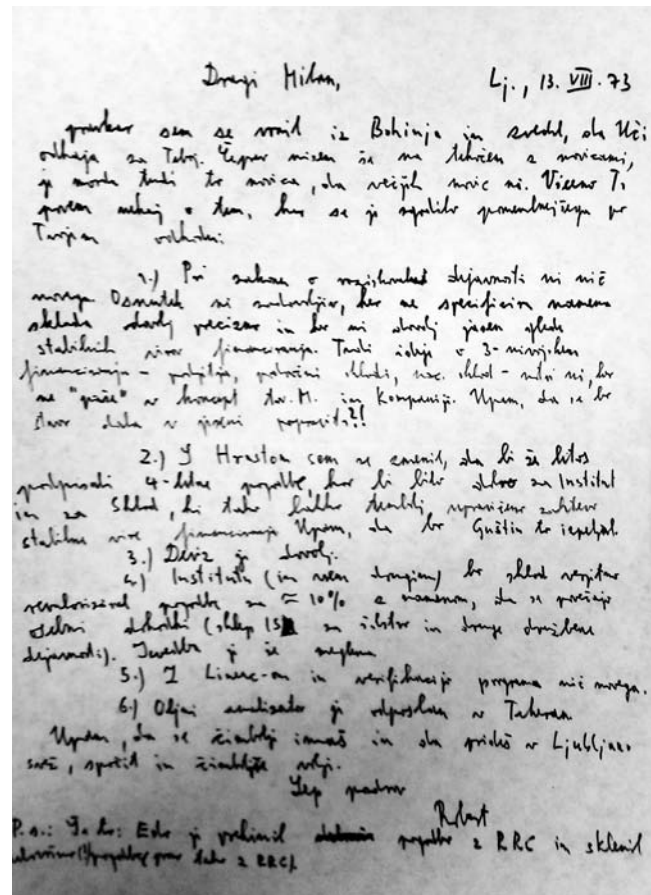 Dragi Milan,
Lj., 13. VIII. 73
pravkar sem se vrnil iz Bohinja in zvedel, da Uči
odhaja za Teboj. Čeprav nisem še na tekočem z novicami,
je morda tudi to novica, da večjih novic ni. Vseeno Ti
povem nekaj o tem, kar se je zgodilo pomembnejšega po
Tvojem odhodu:
1.) Pri zakonu o raziskovalni dejavnosti ni nič
novega. Osnutek ne zadovoljiv, ker ne specificira namena
sklada dovolj precizno in ker ni dovolj jasen glede
stabilnih virov financiranja. Tudi ideja o 3-nivojskem
financiranju - podjetja, področni skladi, nac. sklad - ni, ker
ne "paše" v koncept tov. M. in kompanije. Upam, da se bo
stvar dala v jeseni popraviti?!
2.) S Hrastom sem se zmenil, da bi že letos
podpisali 4-letne pogodbe, kar bi bilo dobro za Institut
in za Sklad, ki tako lahko upravičeno zahteva
stabilne vire financiranja. Upam, da bo Guštin to izpeljal.
3.) Deviz je dovolj.
4.) Institutu (in vsem drugim) bo sklad verjetno
revaloriziral pogodbe za ≈ 10% z namenom, da se povečajo
osebni dohodki (sklep IS za šolstvo in druge družbene
dejavnosti). Izvedba je še meglena.
5.) Z Linac-om in verifikacijo programa nič novega.
6.) Oljni analizator je odposlan v Teheran.
Upam, da se imaš in da prideš v Ljubljano
svež, spočit in volje.
Lep pozdrav
Robert
P.s.: Edo je prekinil pogodbo z RRC in sklenil
(!) pogodbo z RRC).